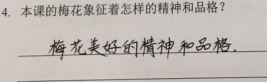 4. 本课的梅花象征着怎样的精神和品格？
梅花美好的精神和品格.